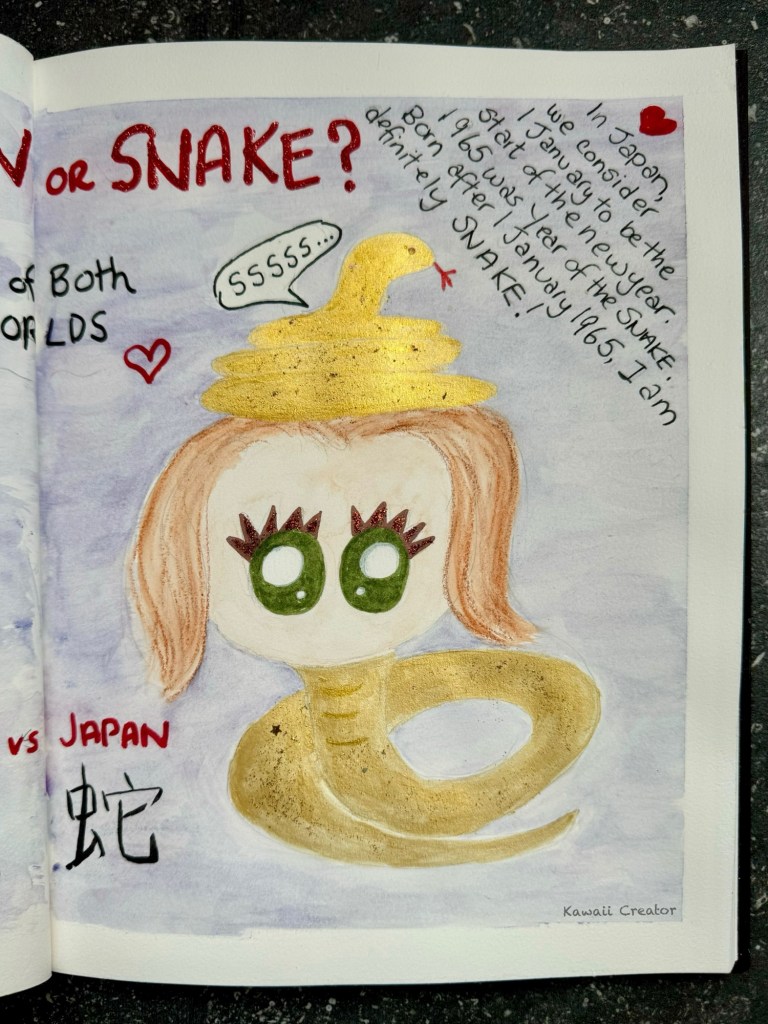 N OR SNAKE?
In Japan,
we consider
1 January to be the
start of the new year.
1965 was Year of the SNAKE.
Born after 1 January 1965, I am
definitely SNAKE!
SSSSS...
of Both
ORLDS
vs JAPAN
蛇
Kawaii Creator